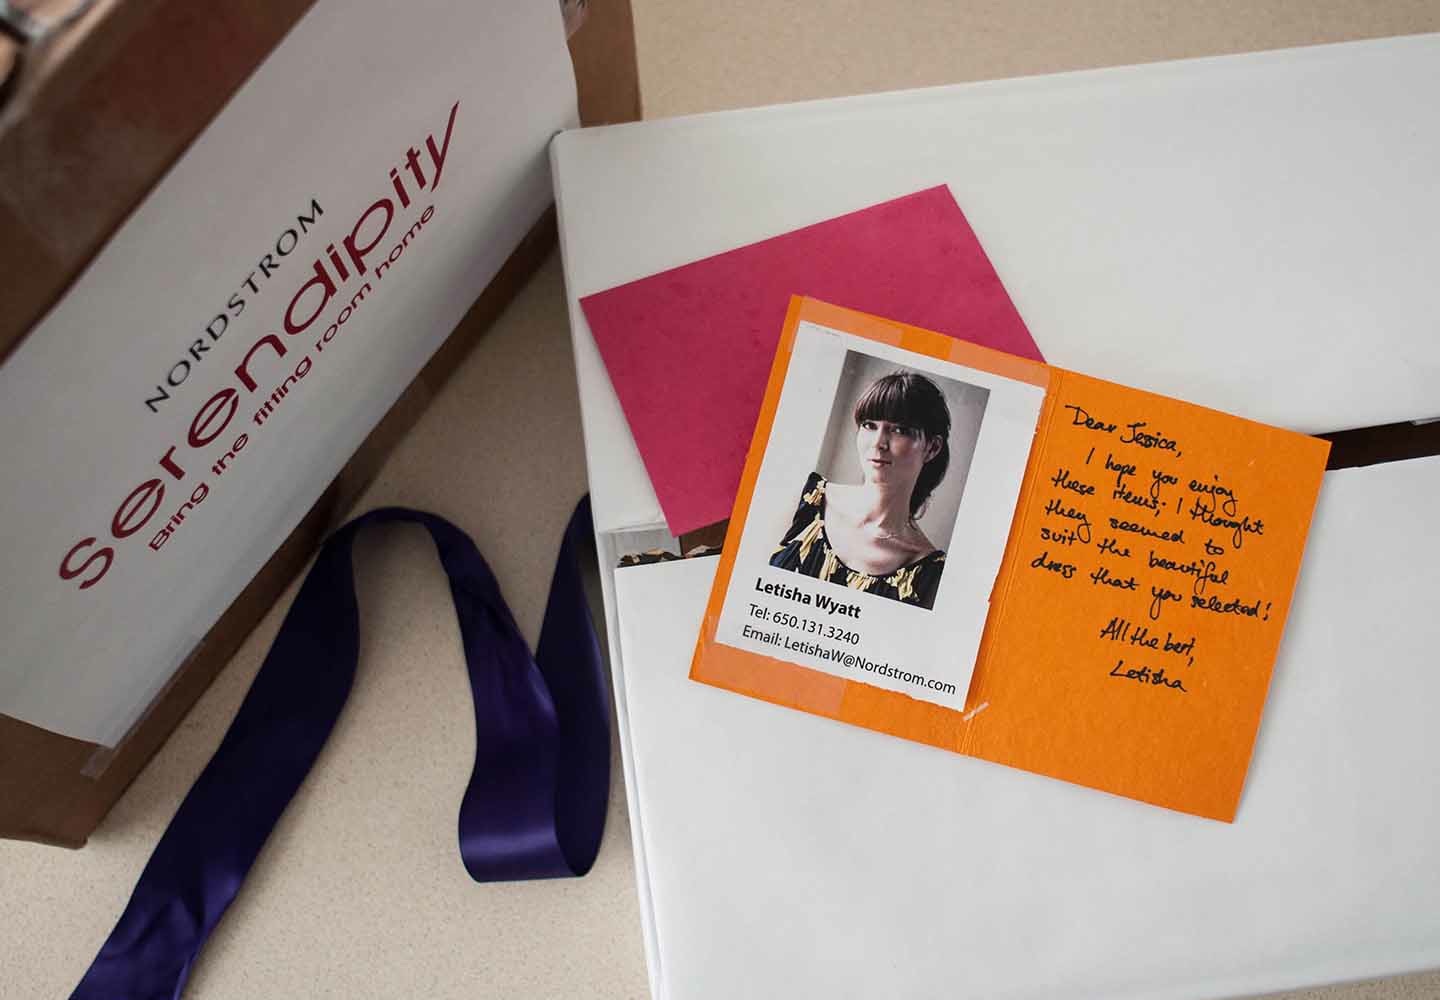 NORDSTROM
serendipity
Bring the fitting room home
Letisha Wyatt
Tel: 650.131.3240
Email: LetishaW@Nordstrom.com
Dear Jessica,
I hope you enjoy
these items; I thought
they seemed to
suit the beautiful
dress that you selected!
All the best,
Letisha